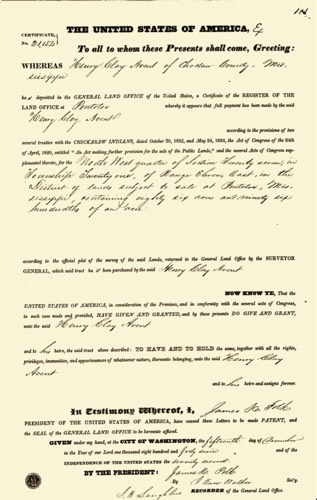 CERTIFICATE,
THE UNITED STATES OF AMERICA, Ex
To all to whom these Presents shall come, Greeting:
WHEREAS Henry Clay Avent of Choctaw County, Mis-
sissippi
ha s deposited in the GENERAL LAND OFFICE of the United States, a Certificate of the REGISTER OF THE
LAND OFFICE at Pontotoc whereby it appears that full payment has been made by the said
Henry Clay Avent
according to the provisions of two
several treaties with the CHICKASAW INDIANS, dated October 20, 1832, and May 24, 1834, the Act of Congress of the 24th
of April, 1820, entitled "An Act making further provision for the sale of the Public Lands," and the several Acts of Congress sup-
plemental thereto, for the North West quarter of Section Twenty seven, in
Township Twenty one, of Range Eleven East, in the
District of lands subject to sale at Pontotoc, Mis-
sissippi, containing eighty six acres and ninety six
hundredths of an acre.
according to the official plat of the survey of the said Lands, returned to the General Land Office by the SURVEYOR
GENERAL, which said tract has been purchased by the said Henry Clay Avent
NOW KNOW YE, That the
UNITED STATES OF AMERICA, in consideration of the Premises, and in conformity with the several acts of Congress,
in such case made and provided, HAVE GIVEN AND GRANTED, and by these presents DO GIVE AND GRANT,
unto the said Henry Clay Avent
and to his heirs, the said tract above described: TO HAVE AND TO HOLD the same, together with all the rights,
privileges, immunities, and appurtenances of whatsoever nature, thereunto belonging, unto the said Henry Clay
Avent
and to his heirs and assigns forever.
In Testimony Whereof, I, James K. Polk
PRESIDENT OF THE UNITED STATES OF AMERICA, have caused these Letters to be made PATENT, and
the SEAL of the GENERAL LAND OFFICE to be hereunto affixed.
GIVEN under my hand, at the CITY OF WASHINGTON, the fifteenth day of December
in the Year of our Lord one thousand eight hundred and forty seven and of the
INDEPENDENCE OF THE UNITED STATES the seventy second
BY THE PRESIDENT: James K. Polk
By
RECORDER of the General Land Office.